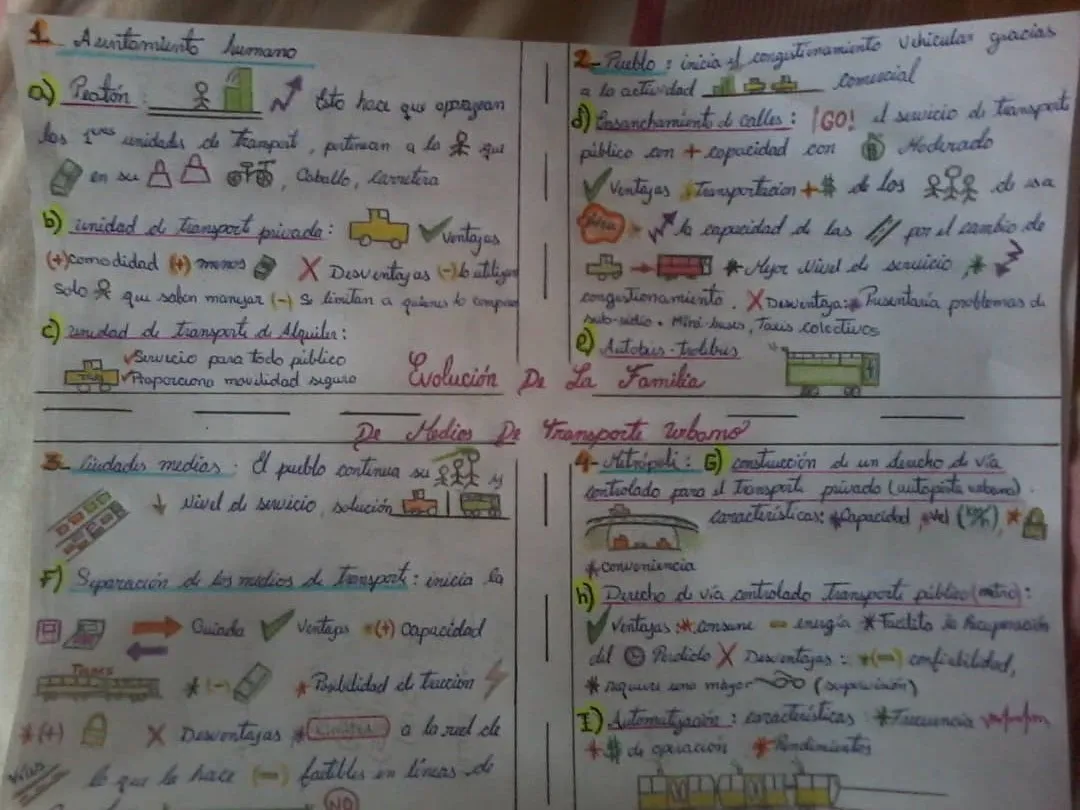 1. Asentamiento humano
a) Peatón:
Esto hace que aparezcan
las 1eras unidades de transport, pertenecan a la que
en su , Caballo, Carretera
b) unidad de transporte privada: Ventajas
(+) comodidad (+) menos X Desventajas (-) lo utilizan
Solo que saben manejar (-) Se limitan a quienes lo compran
c) unidad de transporte de Alquiler:
Servicio para todo público
TAXI
Proporciona movilidad segura
2- Pueblo: inicia el congestionamiento vehicular gracias
a la actividad comercial
d) Ensanchamiento de calles: ¡GO! el servicio de transporte
público con + capacidad con Moderado
Ventajas Transportacion + $ de los de esa
la capacidad de las por el cambio de
* Mejor Nivel de servicio, *
congestionamiento. X Desventaja: * Presentaría problemas de
sub-sidio. Mini-buses, Taxis colectivos
e) Autobus-trolebus
Evolución De La Familia
De Medios De Transporte Urbano
3- Ciudades medias: El pueblo continua su y
↓ Nivel de servicio, solución
F) Separación de los medios de transporte: inicia la
Guiada Ventajas *(+) Capacidad
Trenes
*(-) * Posibilidad de tracción
*(+) X Desventajas * a la red de
Vías
lo que la hace (-) factibles en líneas de
NO
4- Metrópoli: G) construcción de un derecho de vía
controlado para el transporte privado (autopista urbana).
características: * Capacidad, * vel *
* conveniencia
h) Derecho de vía controlado transporte público (metro):
Ventajas: * consume energía * Facilita la Recuperación
del Perdido X Desventajas: *(-) confiabilidad,
* requiere una mayor (supervisión)
I) Automatización: características * Frecuencia
* $ de operación * Rendimientos